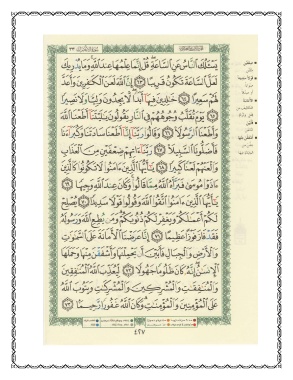 يَسْـَٔلُكَ ٱلنَّاسُ عَنِ ٱلسَّاعَةِ قُلْ إِنَّمَا عِلْمُهَا عِندَ ٱللَّهِ وَمَا يُدْرِيكَ
لَعَلَّ ٱلسَّاعَةَ تَكُونُ قَرِيبًا ٦٣ إِنَّ ٱللَّهَ لَعَنَ ٱلْكَٰفِرِينَ وَأَعَدَّ
لَهُمْ سَعِيرًا ٦٤ خَٰلِدِينَ فِيهَآ أَبَدًا لَّا يَجِدُونَ وَلِيًّا وَلَا نَصِيرًا
٦٥ يَوْمَ تُقَلَّبُ وُجُوهُهُمْ فِى ٱلنَّارِ يَقُولُونَ يَٰلَيْتَنَآ أَطَعْنَا ٱللَّهَ
وَأَطَعْنَا ٱلرَّسُولَا۠ ٦٦ وَقَالُوا۟ رَبَّنَآ إِنَّآ أَطَعْنَا سَادَتَنَا وَكُبَرَآءَنَا
فَأَضَلُّونَا ٱلسَّبِيلَا۠ ٦٧ رَبَّنَآ ءَاتِهِمْ ضِعْفَيْنِ مِنَ ٱلْعَذَابِ
وَٱلْعَنْهُمْ لَعْنًا كَبِيرًا ٦٨ يَٰٓأَيُّهَا ٱلَّذِينَ ءَامَنُوا۟ لَا تَكُونُوا۟ كَٱلَّذِينَ
ءَاذَوْا۟ مُوسَىٰ فَبَرَّأَهُ ٱللَّهُ مِمَّا قَالُوا۟ وَكَانَ عِندَ ٱللَّهِ وَجِيهًا
٦٩ يَٰٓأَيُّهَا ٱلَّذِينَ ءَامَنُوا۟ ٱتَّقُوا۟ ٱللَّهَ وَقُولُوا۟ قَوْلًا سَدِيدًا ٧٠ يُصْلِحْ
لَكُمْ أَعْمَٰلَكُمْ وَيَغْفِرْ لَكُمْ ذُنُوبَكُمْ وَمَن يُطِعِ ٱللَّهَ وَرَسُولَهُۥ
فَقَدْ فَازَ فَوْزًا عَظِيمًا ٧١ إِنَّا عَرَضْنَا ٱلْأَمَانَةَ عَلَى ٱلسَّمَٰوَٰتِ
وَٱلْأَرْضِ وَٱلْجِبَالِ فَأَبَيْنَ أَن يَحْمِلْنَهَا وَأَشْفَقْنَ مِنْهَا وَحَمَلَهَا
ٱلْإِنسَٰنُ إِنَّهُۥ كَانَ ظَلُومًا جَهُولًا ٧٢ لِّيُعَذِّبَ ٱللَّهُ ٱلْمُنَٰفِقِينَ
وَٱلْمُنَٰفِقَٰتِ وَٱلْمُشْرِكِينَ وَٱلْمُشْرِكَٰتِ وَيَتُوبَ ٱللَّهُ
عَلَى ٱلْمُؤْمِنِينَ وَٱلْمُؤْمِنَٰتِ وَكَانَ ٱللَّهُ غَفُورًا رَّحِيمًۢا ٧٣
٤٢٧